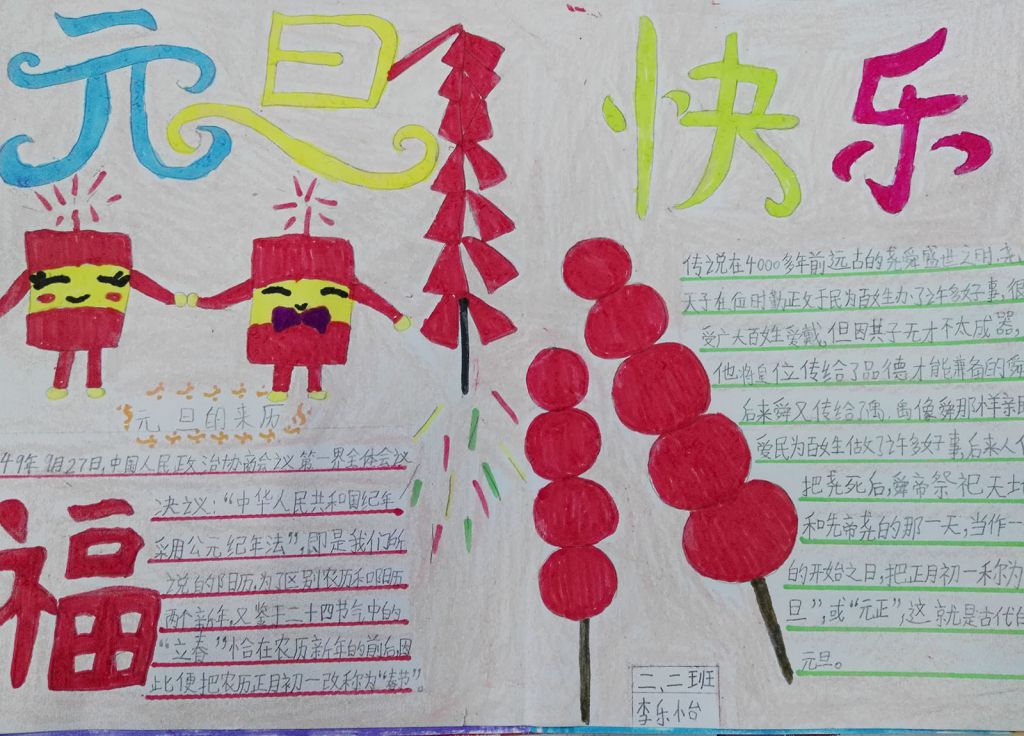 元旦快乐
元旦的来历
49年9月27日,中国人民政治协商会议第一界全体会议
决议:“中华人民共和国纪年
采用公元纪年法”,即是我们所
说的阳历,为了区别农历和阳历
两个新年,又鉴于二十四节气中的
“立春”恰在农历新年的前后因
此便把农历正月初一改称为“春节”。
福
传说在4000多年前远古的尧舜盛世之时,尧
天子在位时勤政于民为百姓办了许多好事,很
受广大百姓爱戴,但因其子无才不太成器,
他将皇位传给了品德才能兼备的舜
后来舜又传给了禹,禹像舜那样亲民
爱民为百姓做了许多好事,后来人们
把尧死后,舜帝祭祀天地
和先帝尧的那一天,当作一
的开始之日,把正月初一称为
旦”,或“元正”,这就是古代的
元旦。
二、二班
李乐怡